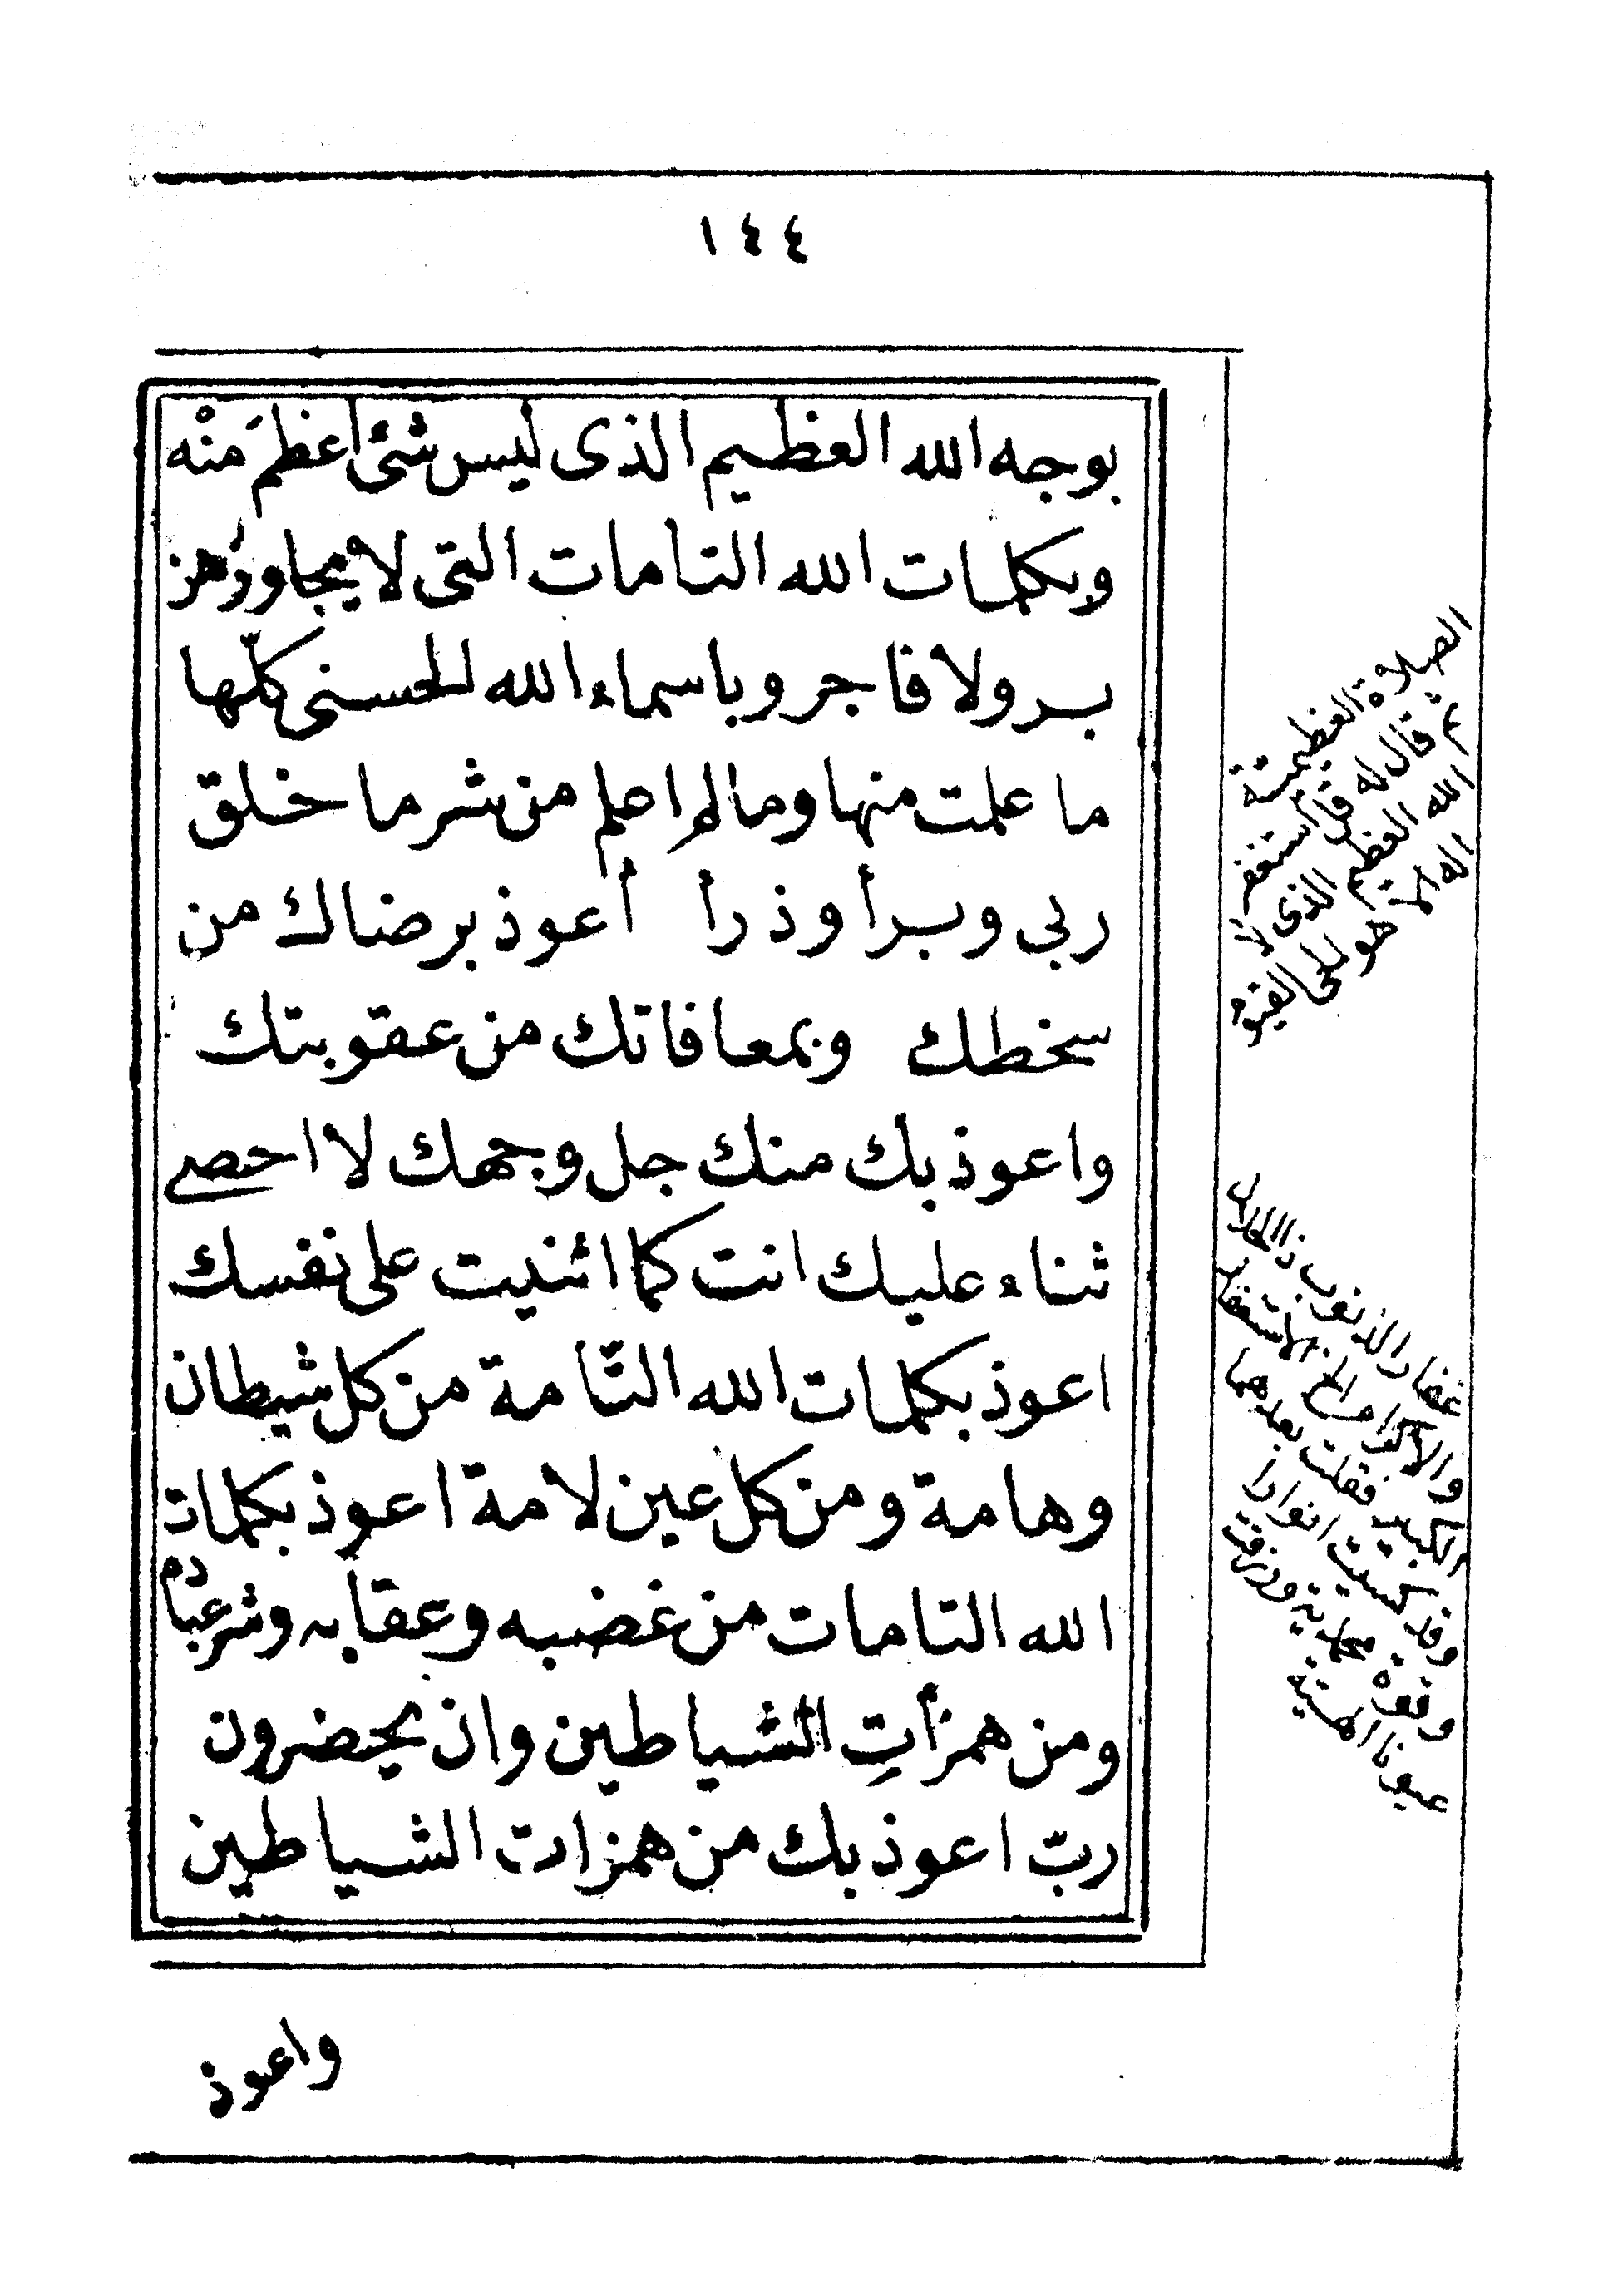 ١٤٤
بوجه الله العظيم الذى ليس شئ اعظمَ منْه
وبكلمات الله التامات التى لا يجاوزهن
بر ولا فاجر وباسماء الله الحسنى كلّها
ما علمت منها وما لم اعلم من شر ما خلق
ربى وبرأ وذرأ أعوذ برضاك من
سخطك وبمعافاتك من عقوبتك
واعوذ بك منك جل وجهك لا احصى
ثناء عليك انت كما اثنيت على نفسك
اعوذ بكلمات الله التّامة من كل شيطان
وهامة ومن كل عين لامة اعوذ بكلمات
الله التامات من غضبه وعقابه وشر عباده
ومن همزأتِ الشياطين وان يحضرون
ربّ اعوذ بك من همزات الشياطين
واعوذ
الصلاة العظيمية
ثم قال له قل استغفر
الله العظيم الذى لا
اله الا هو الحى القيوم
غفار الذنوب ذا الجلال
والاكرام الخ الاستغفار
الكبير فقلت بعدهما
وقد كسيت انوارا
وقوة محمدية ورزقت
عيونا الهية